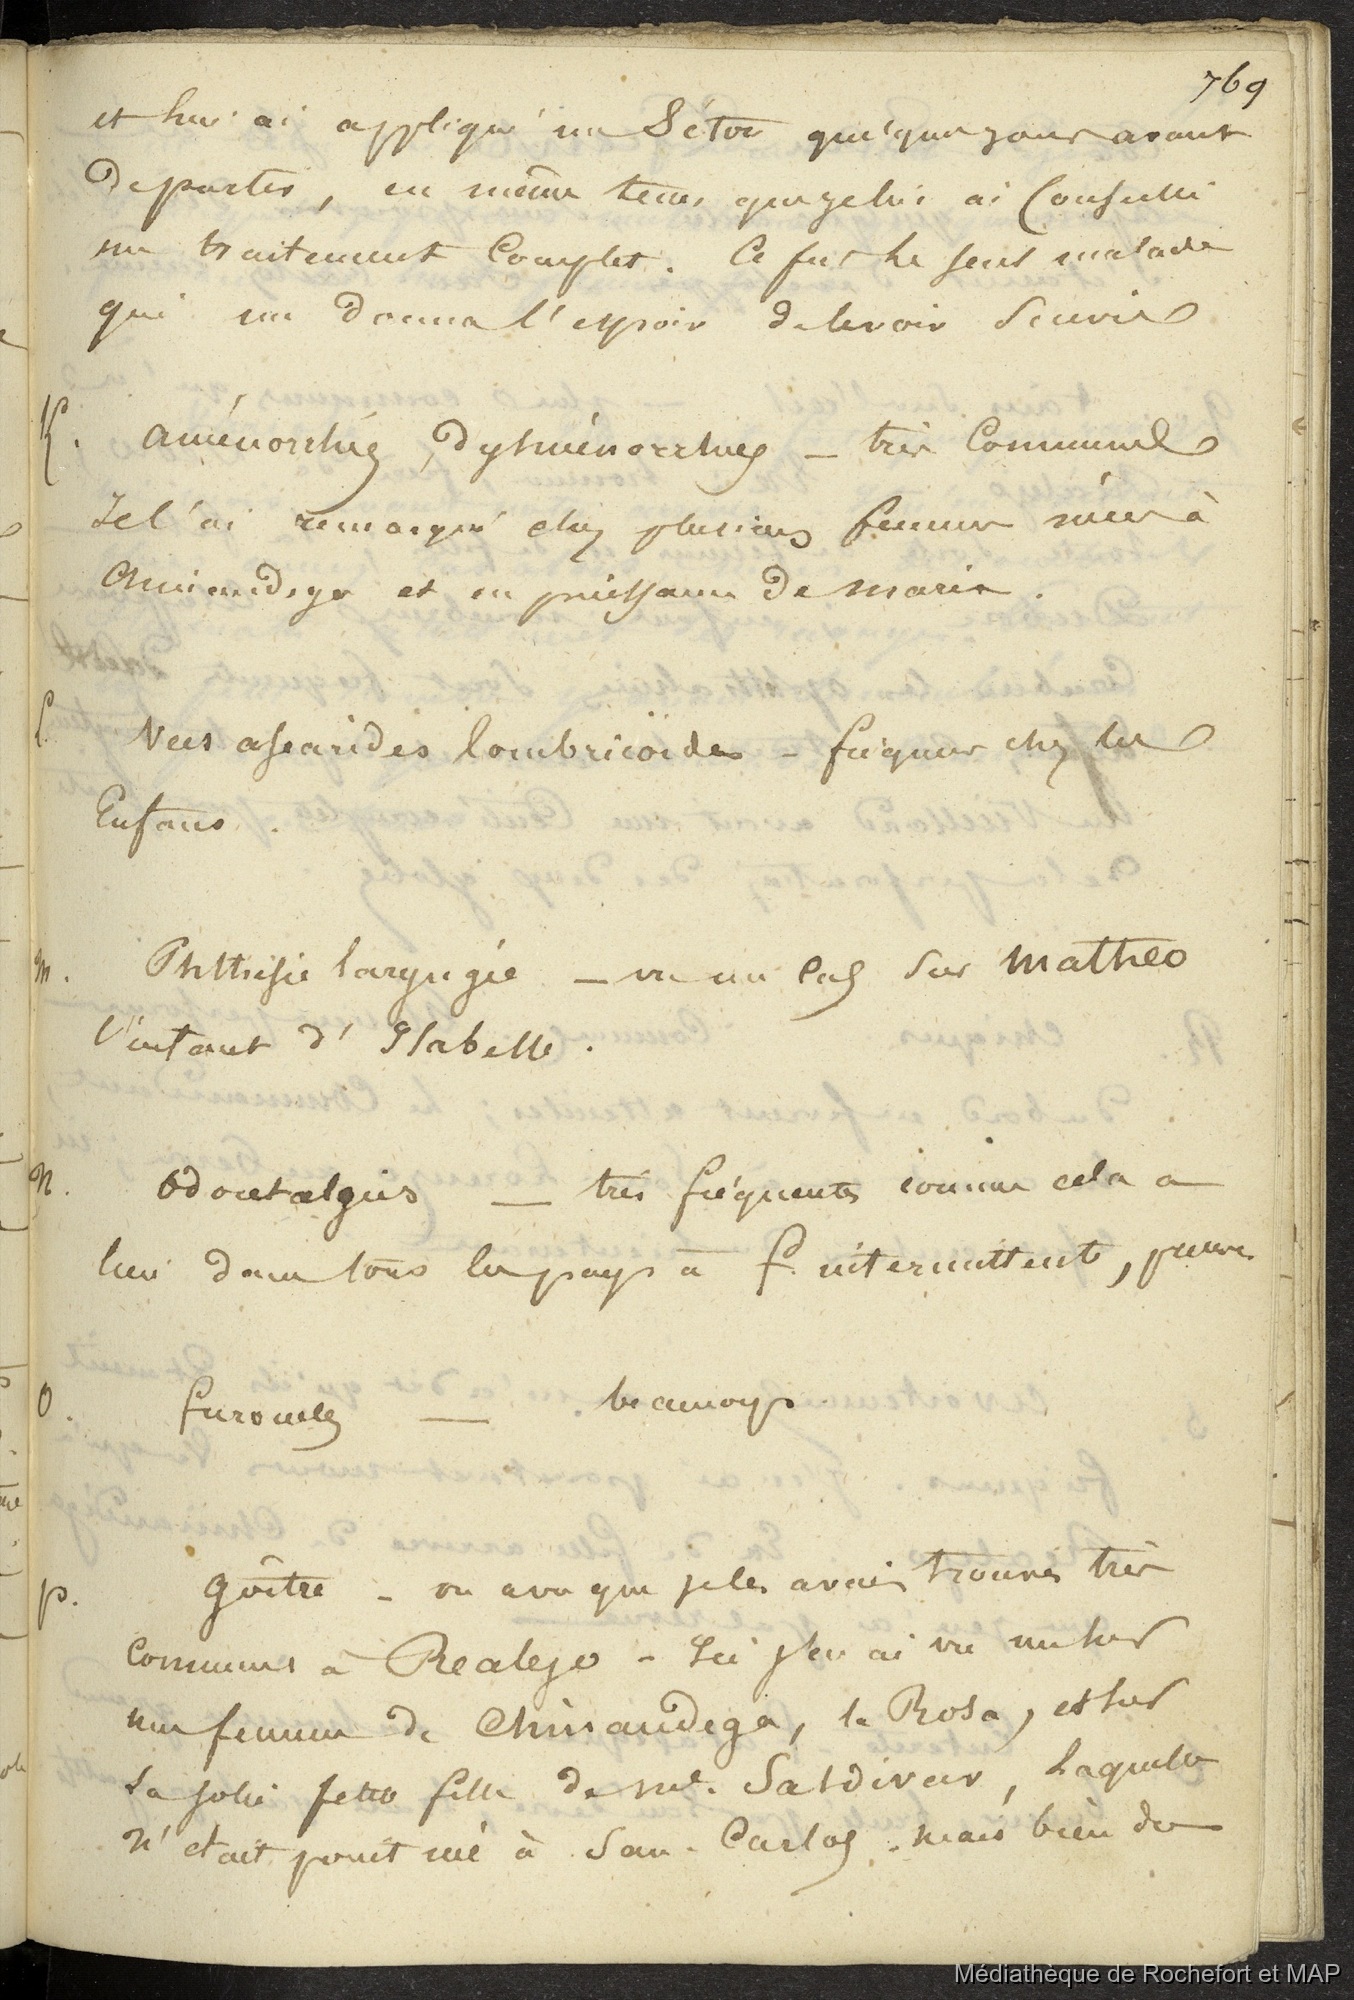 769
et lui ai appliqué un Séton quelques jours avant
de partir, en même tems que je lui ai Conseillé
un traitement Complet. Ce fut le seul malade
qui me donna l'espoir de le voir Guérir
K. aménorrhées, dysménorrhées – très Communes
Je l'ai remarqué chez plusieurs femmes nées à
Chinandega et en puissance de maris.
L. Vers ascarides lombricoïdes – fréquens chez les
Enfans.
M. Phthisie laryngée – vu un Cas sur Matheo
l'enfant d'Isabelle.
N. Odontalgies — très fréquentes comme cela a
lieu dans tous les pays à f. intermittentes,
O. furoncles — beaucoup
P. Goître – on a vu que je les avais trouvés très
communs à Realejo – Ici j'en ai vu un sur
une femme de Chinandega, la Rosa, et sur
la jolie petite fille de mr. Saldivar, laquelle
n'était point née à San-Carlos. mais bien de
Médiathèque de Rochefort et MAP